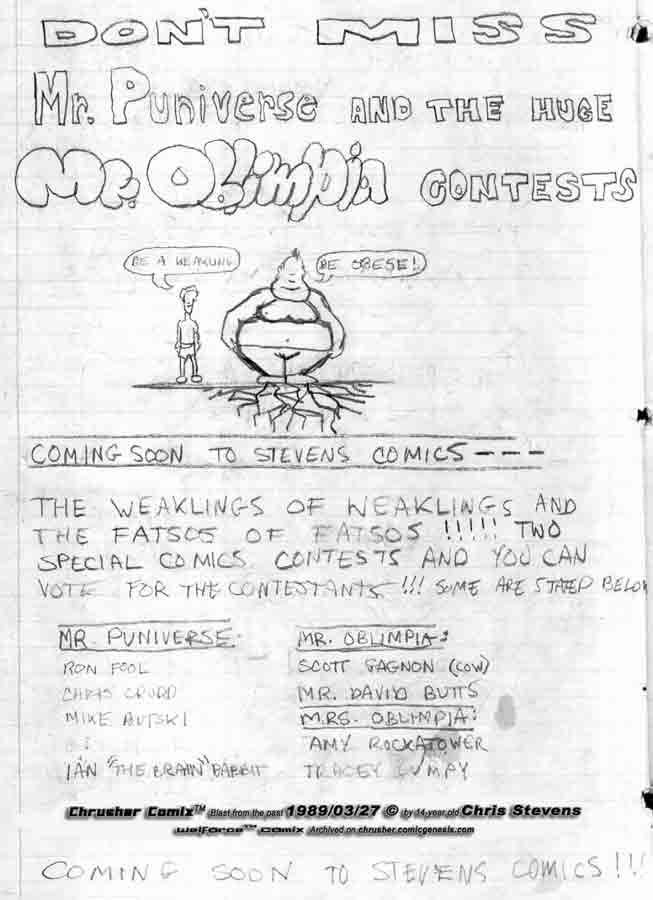 DON'T MISS
Mr. Puniverse AND THE HUGE
Mr. Oblimpia CONTESTS
BE A WEAKLING
BE OBESE!
COMING SOON TO STEVENS COMICS ---
THE WEAKLINGS OF WEAKLINGS AND
THE FATSOS OF FATSOS !!!!! TWO
SPECIAL COMICS CONTESTS AND YOU CAN
VOTE FOR THE CONTESTANTS!!! SOME ARE STATED BELOW
MR. PUNIVERSE:
RON FOOL
CHRIS CRUDD
MIKE BUTSKI
IAN "THE BRAIN" BABBIT
MR. OBLIMPIA:
SCOTT GAGNON (COW)
MR. DAVID BUTTS
MRS. OBLIMPIA:
AMY ROCKATOWER
TRACEY LUMPY
Chrusher Comix™ Blast from the past 1989/03/27 © by 14-year old Chris Stevens
Welforce™ Comix Archived on chrusher.comicgenesis.com
COMING SOON TO STEVENS COMICS!!!